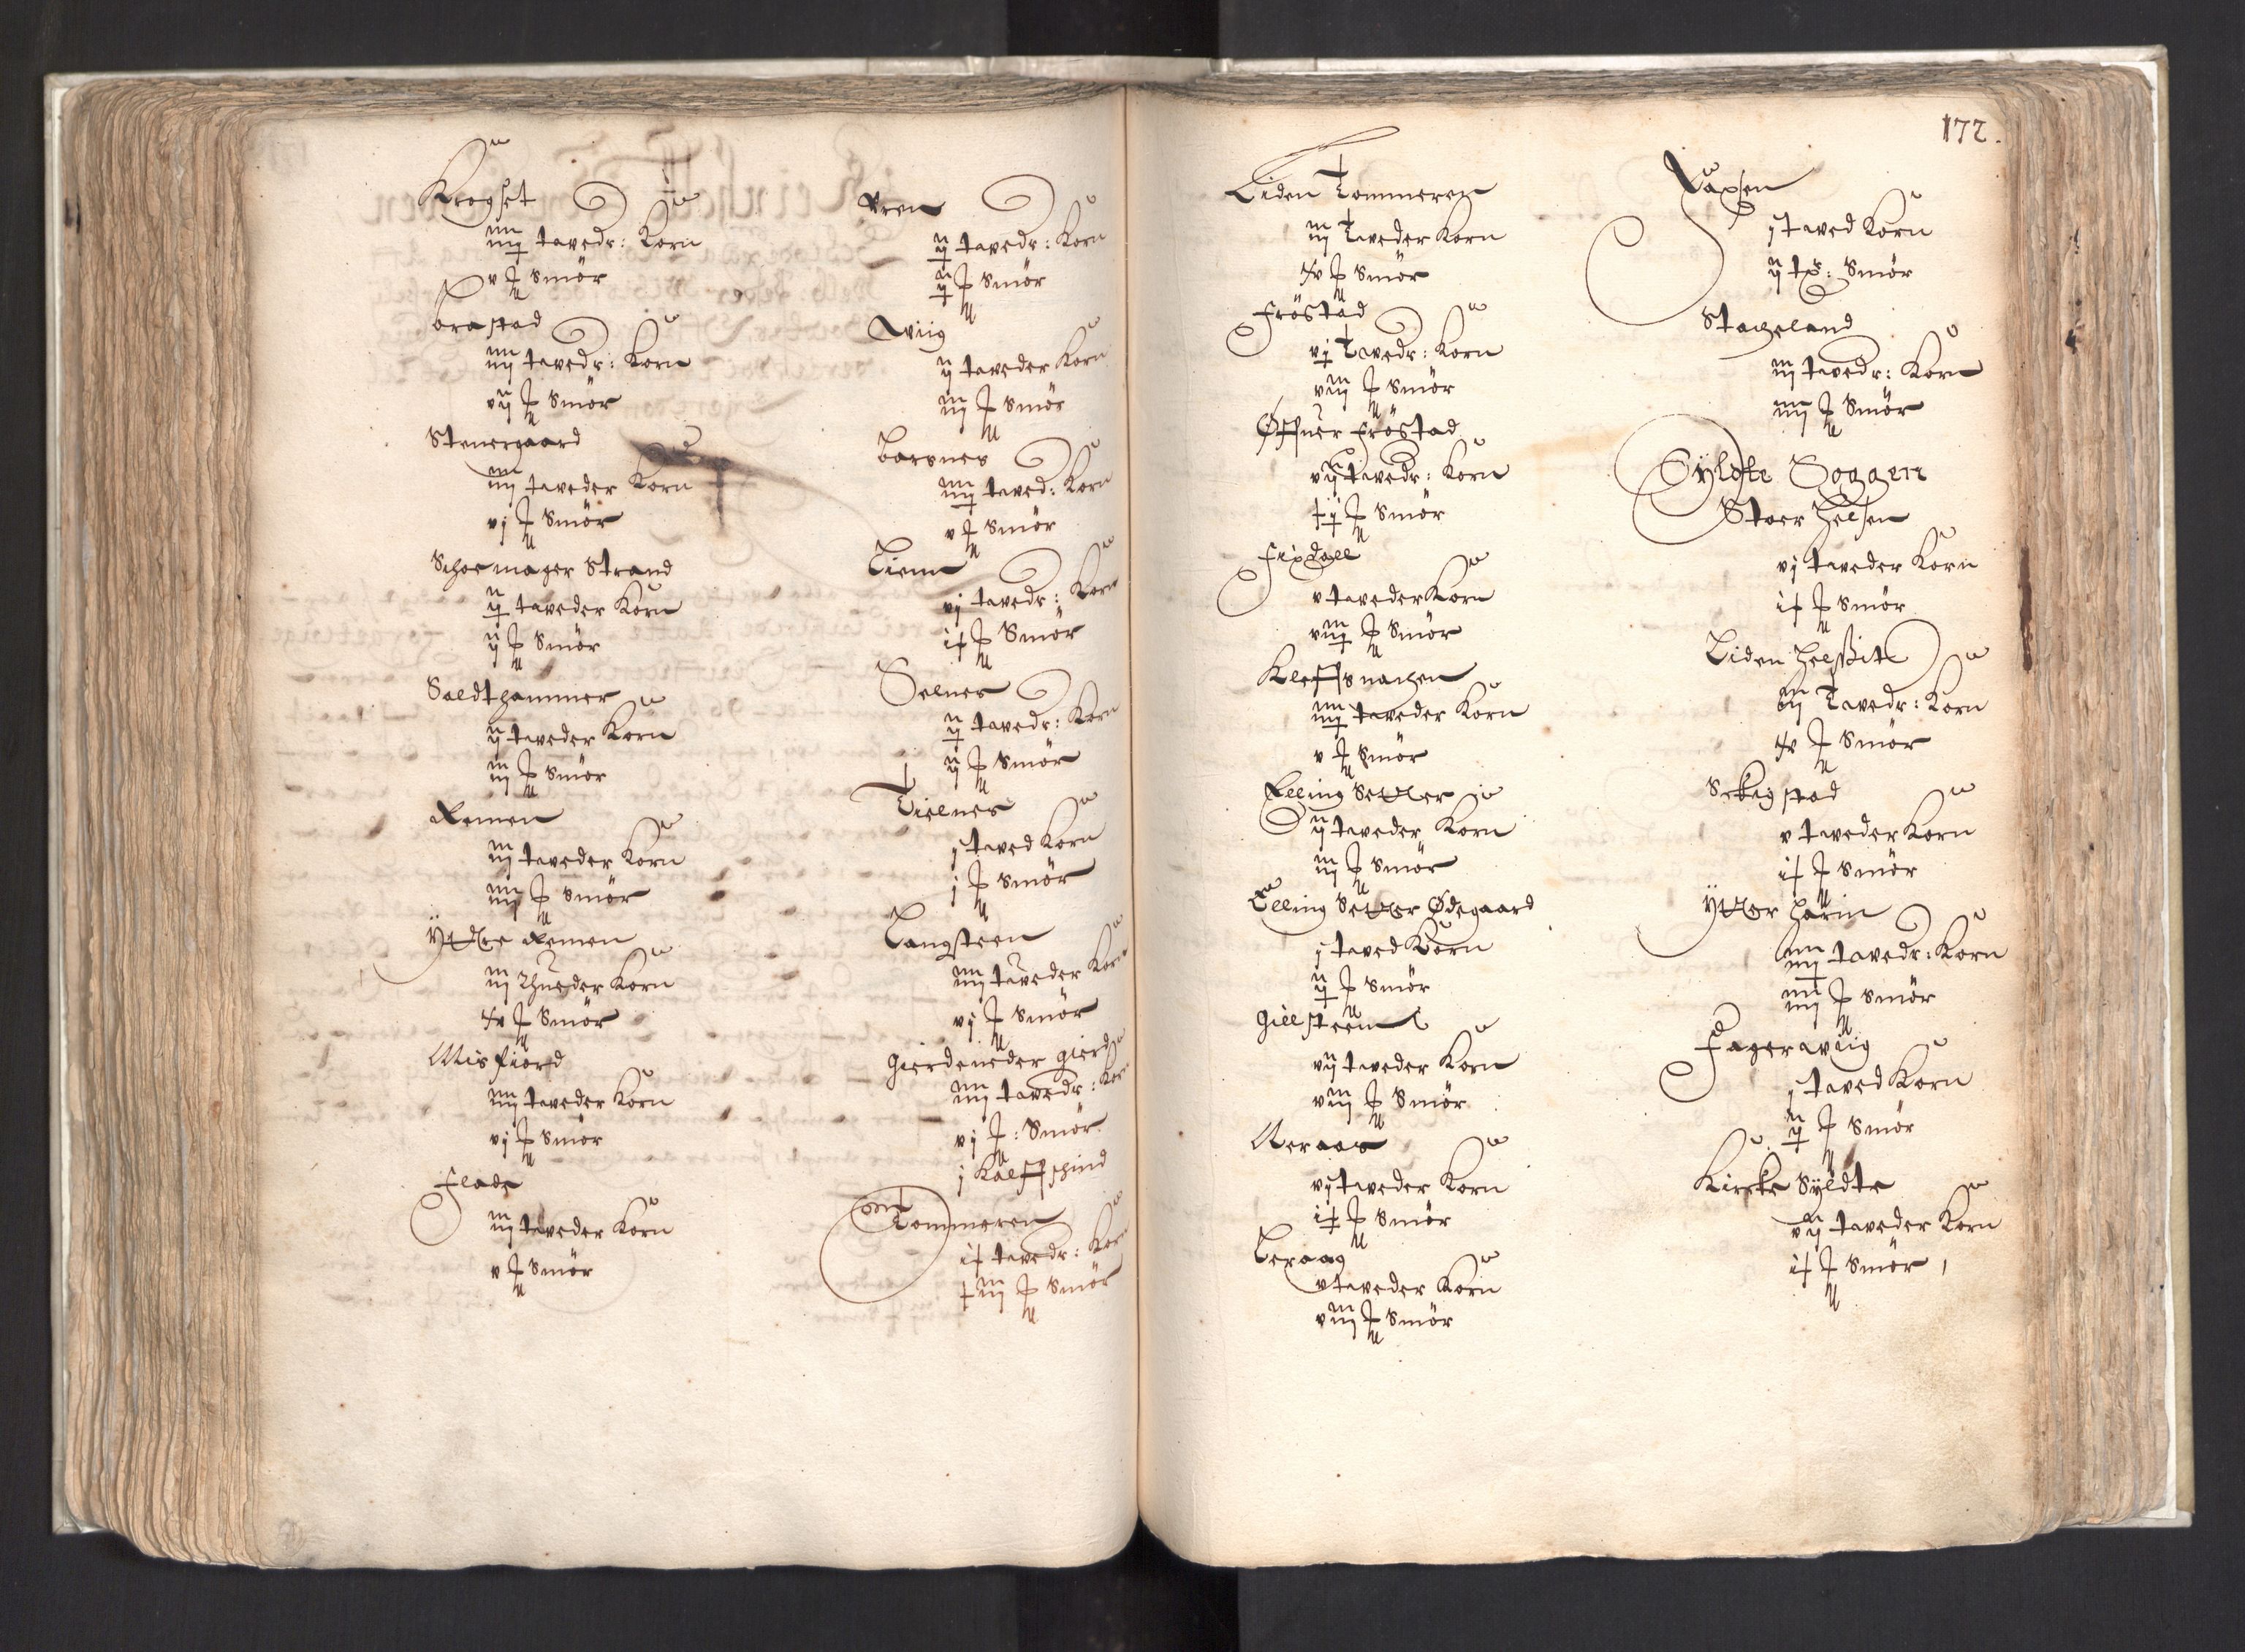 Krogset
iiij tavedr: Korn
v ℔ Smör
brastad
iiij tavedr: Korn
vij ℔ Smör
Stenergaard
iiij taveder Korn
vj ℔ Smör
Schoemager Strand
ij taveder Korn
ij ℔ Smör
Saldthammer
ij taveder Korn
iij ℔ Smör
Remen
iij taveder Korn
iiij ℔ Smör
Ytter Remen
iij Korn
℔ Smör
Misfiord
iiij taveder Korn
vj ℔ Smör
Flade
iij taveder Korn
v ℔ Smör
Vren
ij tavedr: Korn
ij ℔ Smör
Aviig
ij taveder Korn
iij ℔ Smör
Barsnes
iiij taved: Korn
v ℔ Smör
Liem
vj tavedr: Korn
ix ℔ Smör
Selnes
ij tavedr: Korn
ij ℔ Smör
Tielnes
j taved Korn
j ℔ Smör
Langsteen
iiij taveder Korn
vj ℔ Smör
gierd
iiij tavedr: Korn
vj ℔: Smör
j Kalffschind
Tommeren
ix tavedr: Korn
℔ Smör
172.
Liden Tommeren
iij taveder Korn
℔ Smör
Fröstad
vj tavedr: Korn
viij ℔ Smör
Øffuer Fröstad
vij tavedr: Korn
℔ Smör
Fixdall
v taveder Korn
viij ℔ Smör
Kleffsnachen
iiij taveder Korn
v ℔ Smör
Elling Setter
ij taveder Korn
iij ℔ Smör
Elling Setter Ødegaard
j taved Korn
ij ℔ Smör
Gillsteen
vij taveder Korn
viij ℔ Smör
Meraas
vj taveder Korn
ix ℔ Smör
Leraag
v taveder Korn
viij ℔ Smör
Vaxsen
j taved Korn
ij Smör
Stageland
iij tavedr: Korn
iiij ℔ Smör
Syldte Soggen
Stoer Helsen
vj taveder Korn
ix ℔ Smör
Liden
tavedr: Korn
℔ Smör
v taveder Korn
ix ℔ Smör
Ytter Harin
iiij tavedr: Korn
iiij ℔ Smör
Fageraviig
j taved Korn
ij ℔ Smör
Kircke Syldte
vij taveder Korn
ix ℔ Smör